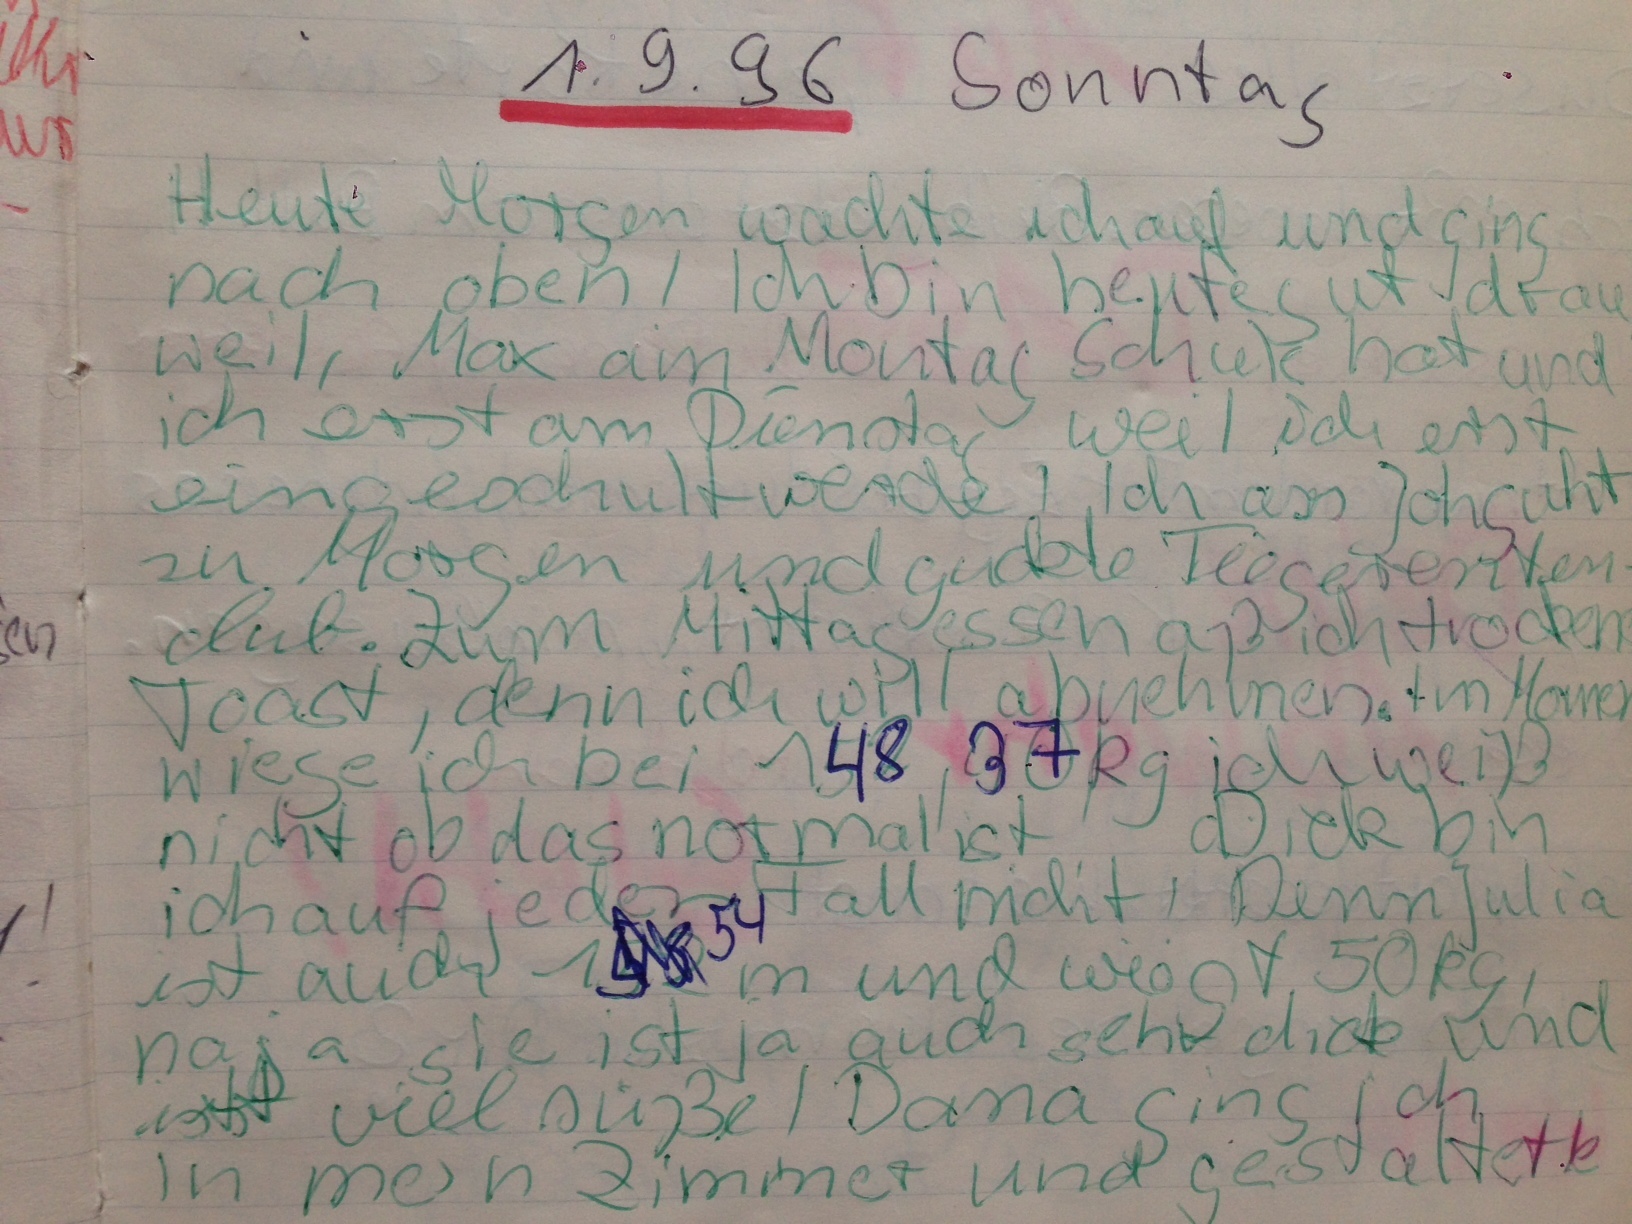 1.9.96 Sonntag
Heute Morgen wachte ich auf und ging
nach oben! Ich bin heute gut drau
weil, Max am Montag Schule hat und
ich erst am Dienstag weil ich erst
eingeschult werde! Ich ass Johguht
zu Morgen und guckte Tiegerenten-
club. Zum Mittagessen aß ich trockene
Toast, denn ich will abnehmen. Im Momen
wiege ich bei 148, 37 kg ich weiß
nicht ob das normal ist Dick bin
ich auf jeden Fall nicht, Denn Julia
ist auch 154 m und wiegt 50 kg,
naja sie ist ja auch sehr dick und
isst viel süße! Dana ging ich
in mein Zimmer und gestaltete